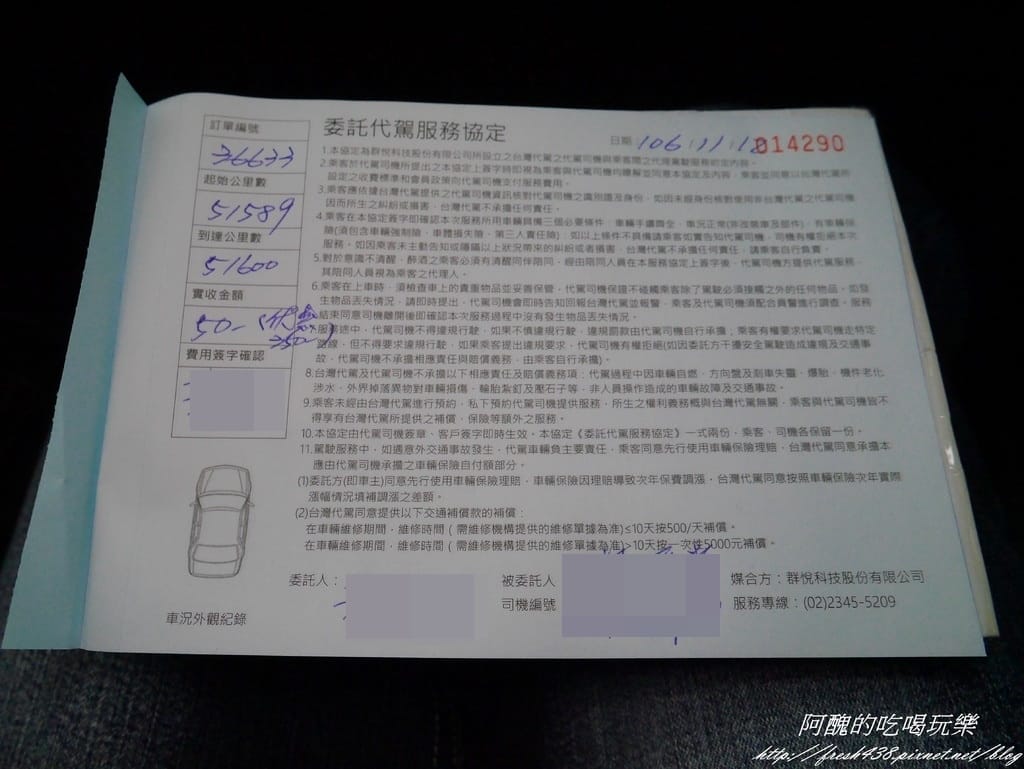 訂單編號
36633
起始公里數
51589
到達公里數
51600
實收金額
50-
費用簽字確認
委託代駕服務協定
日期 106/11/12
014290
1.本協定為群悅科技股份有限公司所設立之台灣代駕之代駕司機與乘客間之代理駕駛服務約定內容。
2.乘客於代駕司機所提出之本協定上簽字時即視為乘客與代駕司機均瞭解並同意本協定及內容,乘客並同意以台灣代駕所
設定之收費標準和會員政策向代駕司機支付服務費用。
3.乘客應依據台灣代駕提供之代駕司機資訊核對代駕司機之識別證及身份,如因未經身份核對使用非台灣代駕之代駕司機
因而所生之糾紛或損害,台灣代駕不承擔任何責任。
4.乘客在本協定簽字即確認本次服務所用車輛具備三個必要條件,車輛手續齊全,車況正常(非改裝車及部件),有車輛保
險(須包含車輛強制險,車體損失險,第三人責任險);如以上條件不具備請乘客如實告知代駕司機,司機有權拒絕本次
服務,如因乘客未主動告知或隱瞞以上狀況帶來的糾紛或者損害,台灣代駕不承擔任何責任,請乘客自行負責。
5.對於意識不清醒,醉酒之乘客必須有清醒同伴陪同,經由陪同人員在本服務協定上簽字後,代駕司機方提供代駕服務,
其陪同人員視為乘客之代理人。
6.乘客在上車時,須檢查車上的貴重物品並妥善保管,代駕司機保證不碰觸乘客除了駕駛必須接觸之外的任何物品,如發
生物品丟失情況,請即時提出,代駕司機會即時告知回報台灣代駕並報警,乘客及代駕司機須配合員警進行調查。服務
結束同意司機離開後即確認本次服務過程中沒有發生物品丟失情況。
服務途中,代駕司機不得違規行駛,如果不慎違規行駛,違規罰款由代駕司機自行承擔;乘客有權要求代駕司機走特定
路線,但不得要求違規行駛,如果乘客提出違規要求,代駕司機有權拒絕(如因委託方干擾安全駕駛造成違規及交通事
故,代駕司機不承擔相應責任與賠償義務,由乘客自行承擔)。
8.台灣代駕及代駕司機不承擔以下相應責任及賠償義務項:代駕過程中因車輛自燃,方向盤及剎車失靈,爆胎,機件老化
涉水,外界掉落異物對車輛損傷,輪胎紮釘及壓石子等,非人員操作造成的車輛故障及交通事故。
9.乘客未經由台灣代駕進行預約,私下預約代駕司機提供服務,所生之權利義務概與台灣代駕無關,乘客與代駕司機皆不
得享有台灣代駕所提供之補償,保險等額外之服務。
10.本協定由代駕司機簽章、客戶簽字即時生效。本協定《委託代駕服務協定》一式兩份,乘客、司機各保留一份。
11.駕駛服務中,如遇意外交通事故發生,代駕車輛負主要責任,乘客同意先行使用車輛保險理賠,台灣代駕同意承擔本
應由代駕司機承擔之車輛保險自付額部分。
(1)委託方(即車主)同意先行使用車輛保險理賠,車輛保險因理賠導致次年保費調漲,台灣代駕同意按照車輛保險次年實際
漲幅情況填補調漲之差額。
(2)台灣代駕同意提供以下交通補償款的補償:
在車輛維修期間,維修時間(需維修機構提供的維修單據為准)≤10天按500/天補償。
在車輛維修期間,維修時間(需維修機構提供的維修單據為准)>10天按一次性5000元補償。
委託人:
被委託人
司機編號
媒合方:群悅科技股份有限公司
服務專線:(02)2345-5209
車況外觀紀錄
阿醜的吃喝玩樂
http://fresh438.pixnet.net/blog